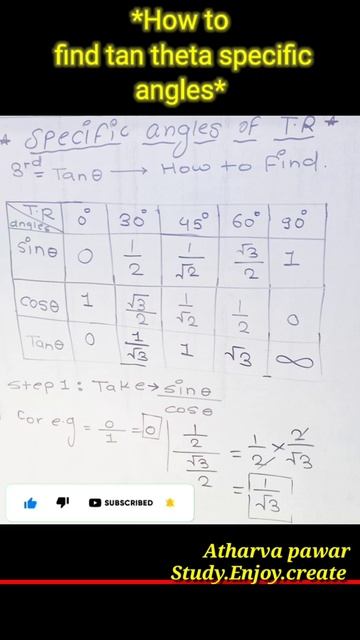 *How to
find tan theta specific
angles*
* Specific angles of T.R *
3rd = Tanθ → How to Find.
T.R angles 0° 30° 45° 60° 90°
sinθ 0 1/2 1/√2 √3/2 1
cosθ 1 √3/2 1/√2 1/2 0
Tanθ 0 1/√3 1 √3 ∞
Step 1: Take → sinθ/cosθ
Cor e.g = 0/1 = 0 | (1/2)/(√3/2) = 1/2 × 2/√3
= 1/√3
SUBSCRIBED
Atharva pawar
Study.Enjoy.create